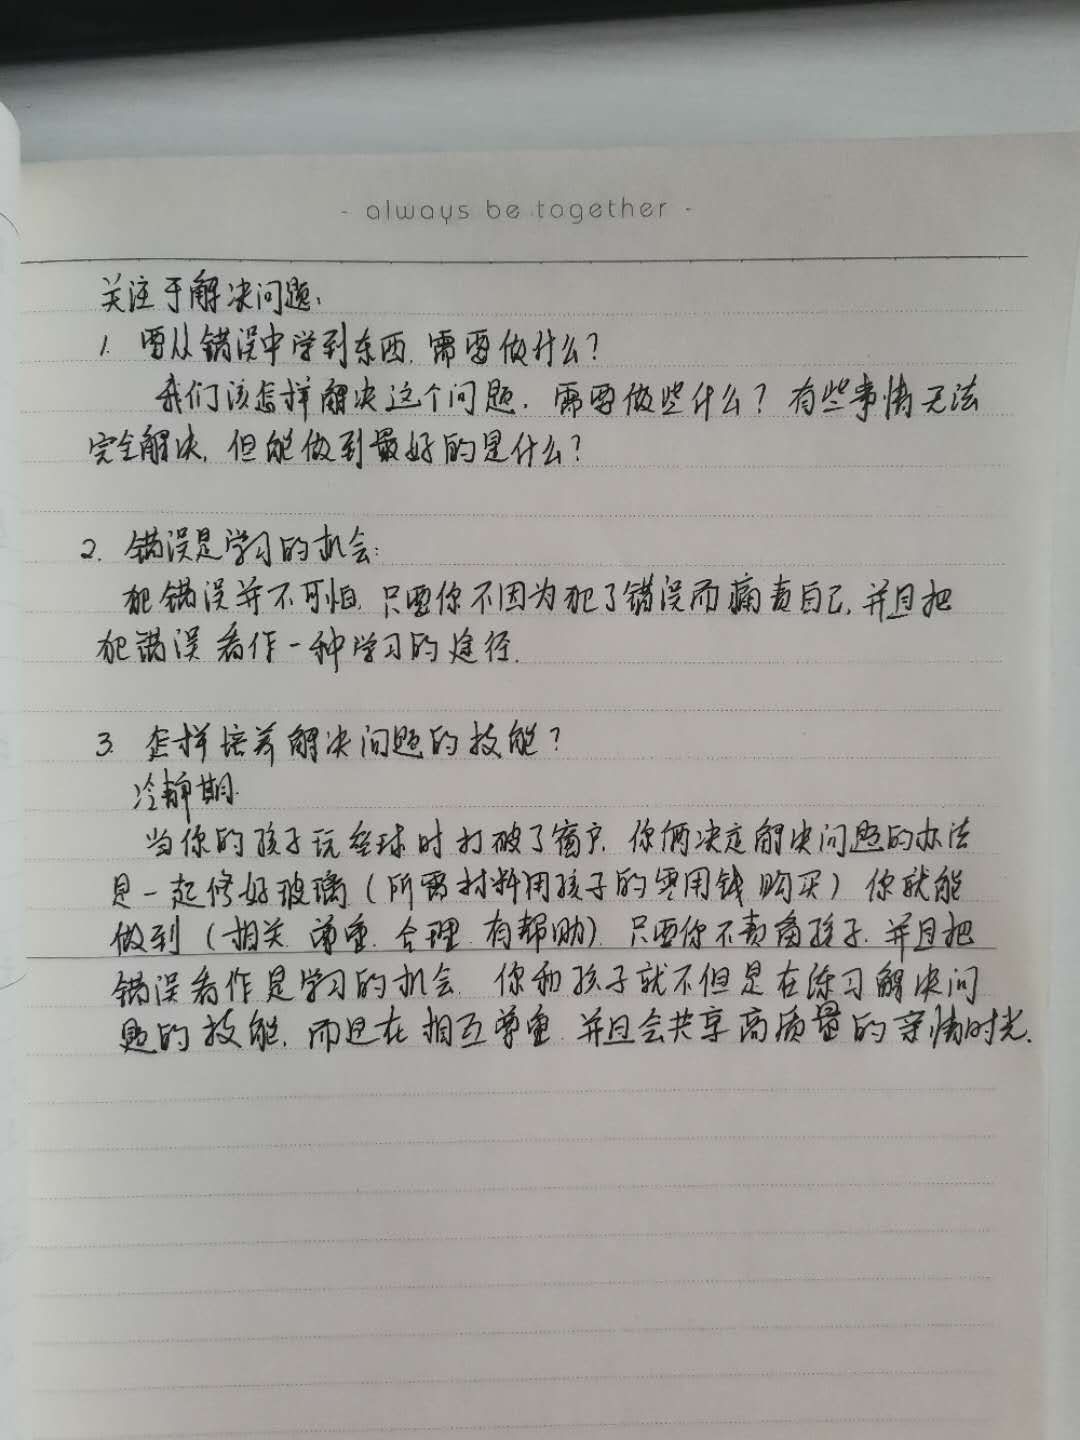 - always be together -
关注于解决问题:
1. 要从错误中学到东西,需要做什么?
我们该怎样解决这个问题,需要做些什么?有些事情无法
完全解决,但能做到最好的是什么?
2. 错误是学习的机会:
犯错误并不可怕,只要你不因为犯了错误而痛责自己,并且把
犯错误看作一种学习的途径.
3. 怎样培养解决问题的技能?
冷静期.
当你的孩子玩垒球时打破了窗户,你俩决定解决问题的办法
是一起修好玻璃(所需材料用孩子的零用钱购买)你就能
做到(相关.尊重.合理.有帮助).只要你不责备孩子.并且把
错误看作是学习的机会.你和孩子就不但是在练习解决问
题的技能,而且在相互尊重.并且会共享高质量的亲情时光.